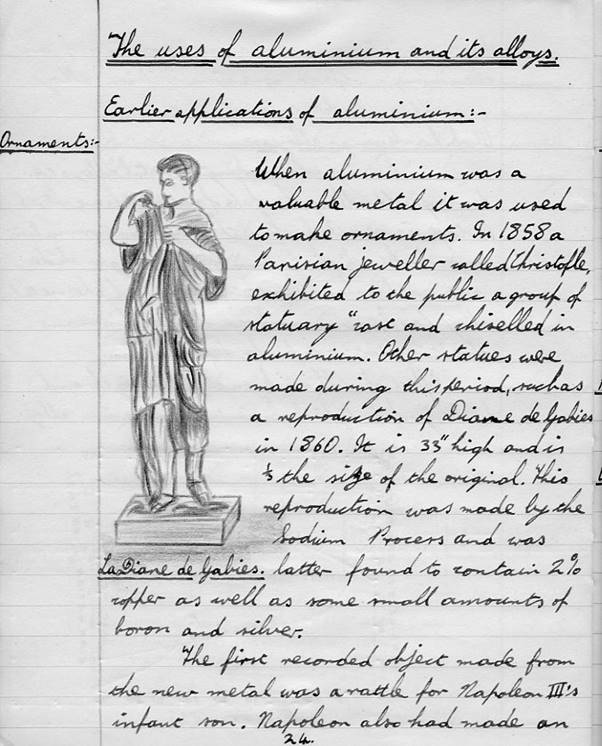 The uses of aluminium and its alloys.
Earlier applications of aluminium:-
Ornaments:-
When aluminium was a
valuable metal it was used
to make ornaments. In 1858 a
Parisian jeweller called Christofle,
exhibited to the public a group of
statuary "cast and chiselled in
aluminium. Other statues were
made during this period, such as
a reproduction of Diane de Gabies
in 1860. It is 33" high and is
½ the size of the original. This
reproduction was made by the
Sodium Process and was
La Diane de Gabies. latter found to contain 2%
copper as well as some small amounts of
boron and silver.
The first recorded object made from
the new metal was a rattle for Napoleon III's
infant son. Napoleon also had made an
24.